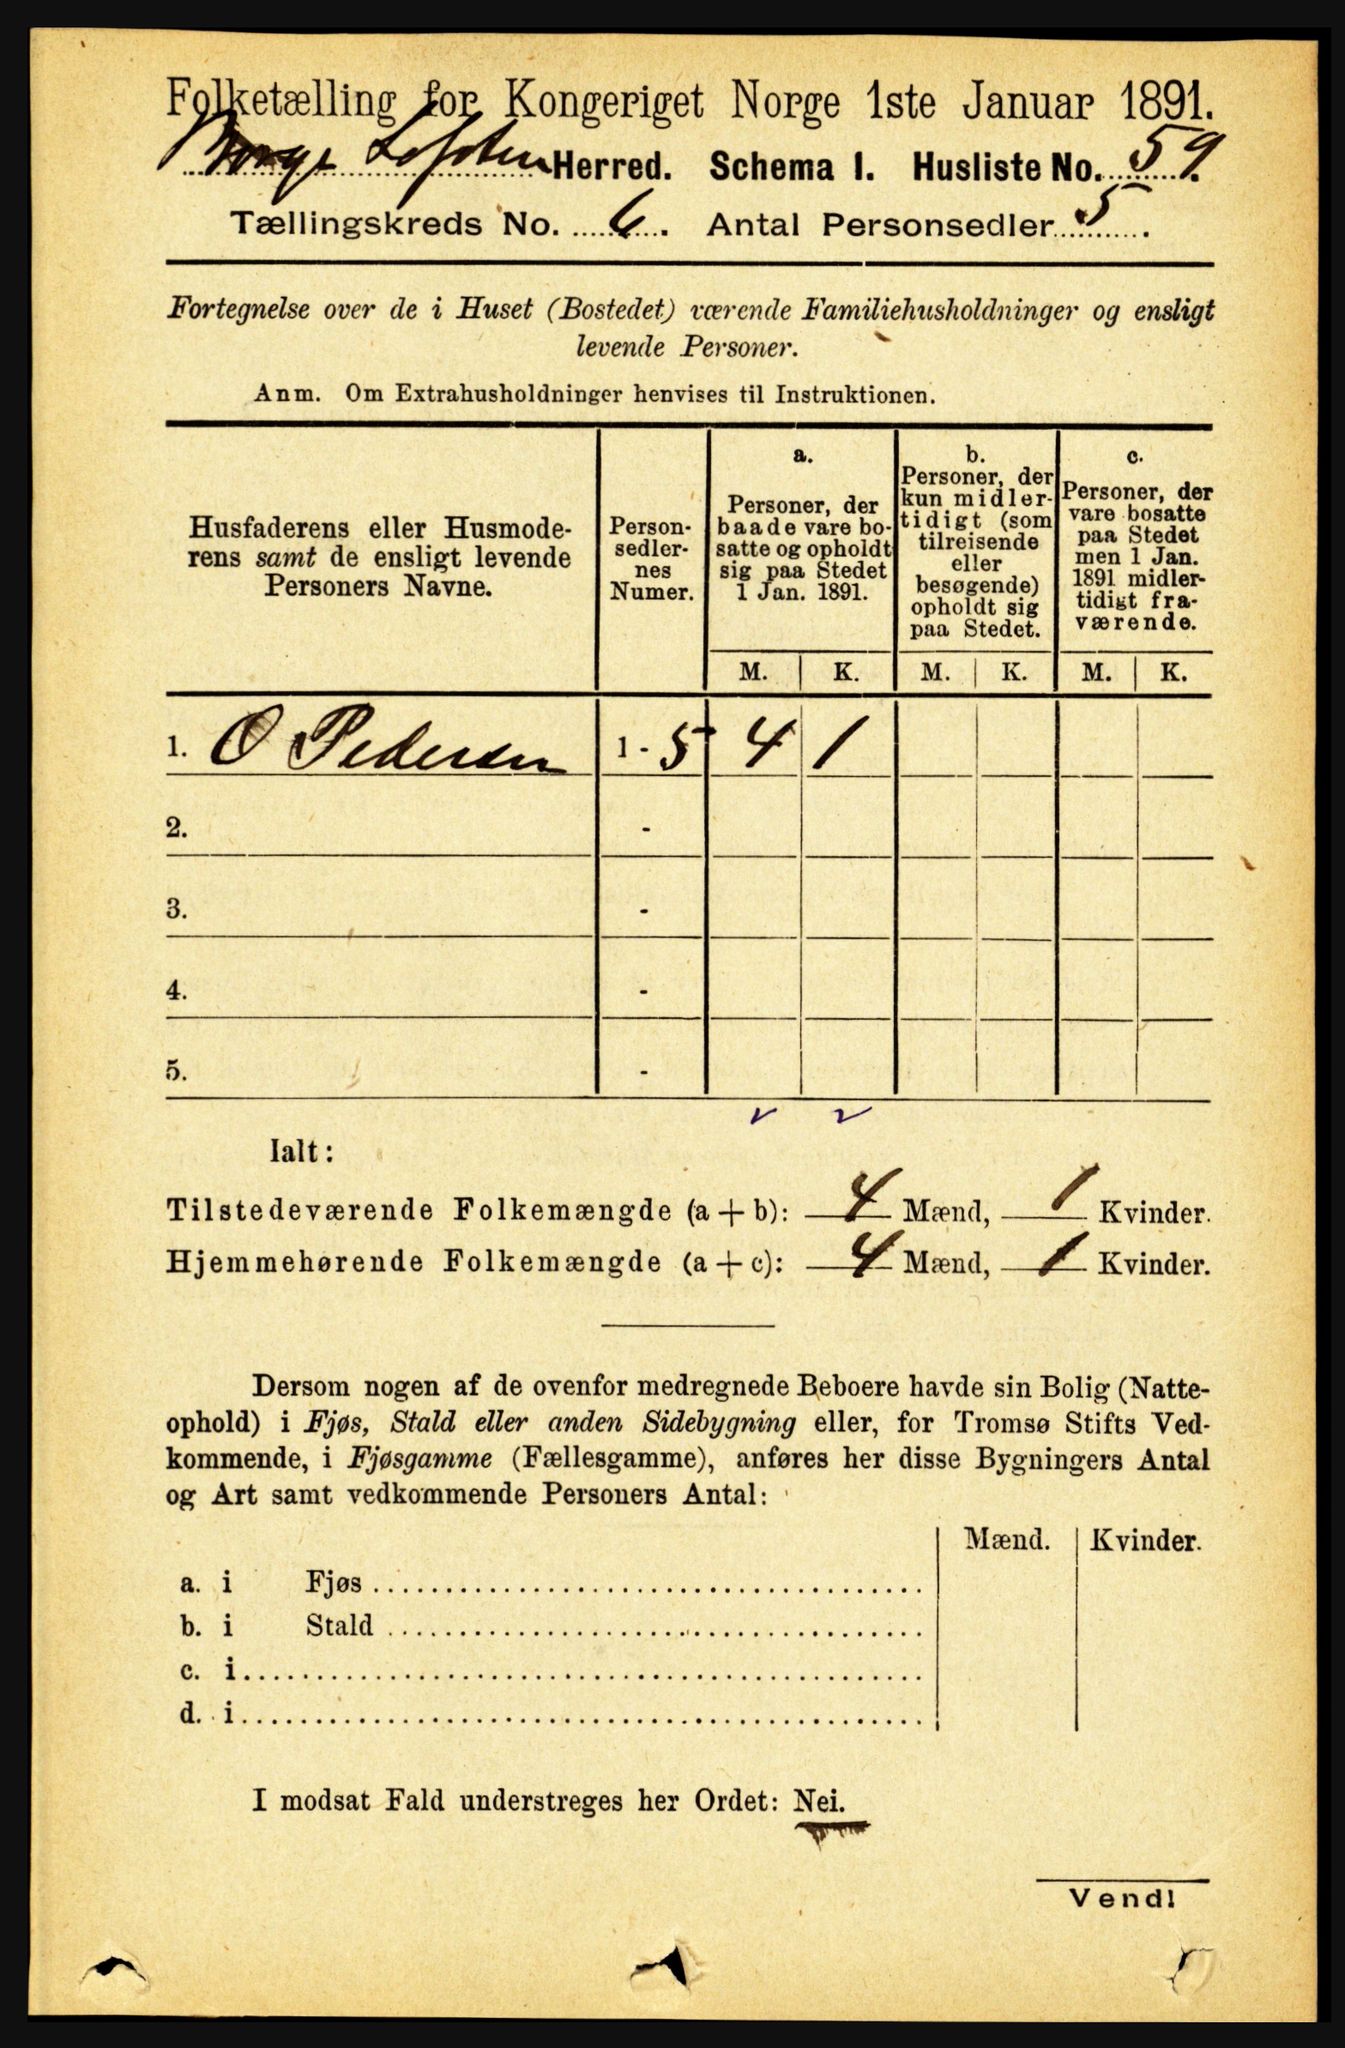 Folketælling for Kongeriget Norge 1ste Januar 1891.
Borge Lofoten Herred. Schema I. Husliste No. 59.
Tællingskreds No. 6. Antal Personsedler 5.
Fortegnelse over de i Huset (Bostedet) værende Familiehusholdninger og ensligt
levende Personer.
Anm. Om Extrahusholdninger henvises til Instruktionen.
Husfaderens eller Husmode-
rens samt de ensligt levende
Personers Navne.
Person-
sedler-
nes
Numer.
a.
Personer, der
baade vare bo-
satte og opholdt
sig paa Stedet
1 Jan. 1891.
b.
Personer, der
kun midler-
tidigt (som
tilreisende
eller
besøgende)
opholdt sig
paa Stedet.
c.
Personer, der
vare bosatte
paa Stedet
men 1 Jan.
1891 midler-
tidigt fra-
værende.
M. K. M. K. M. K.
1. O Pedersen 1 - 5 4 1
2. -
3. -
4. -
5. -
Ialt:
Tilstedeværende Folkemængde (a + b): 4 Mænd, 1 Kvinder.
Hjemmehørende Folkemængde (a + c): 4 Mænd, 1 Kvinder.
Dersom nogen af de ovenfor medregnede Beboere havde sin Bolig (Natte-
ophold) i Fjøs, Stald eller anden Sidebygning eller, for Tromsø Stifts Ved-
kommende, i Fjøsgamme (Fællesgamme), anføres her disse Bygningers Antal
og Art samt vedkommende Personers Antal:
Mænd. Kvinder.
a. i Fjøs
b. i Stald
c. i
d. i
I modsat Fald understreges her Ordet: Nei.
Vend!